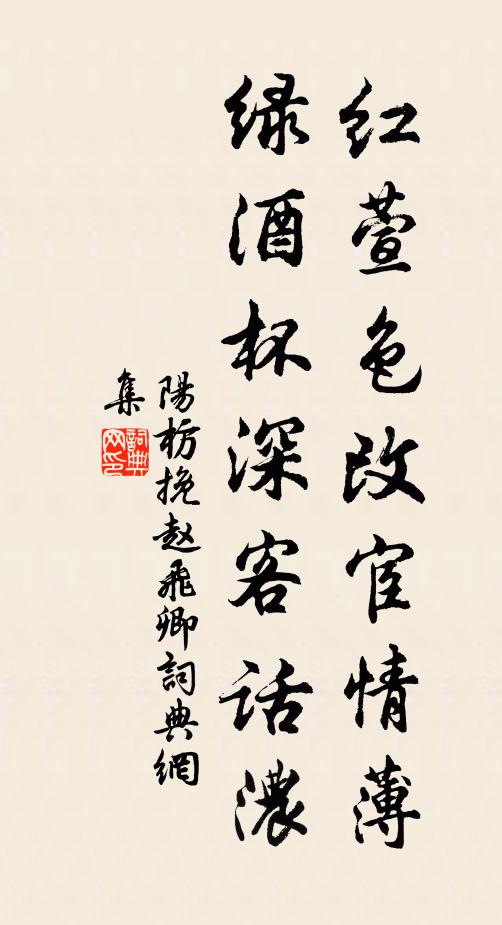 红萱色改宦情薄
绿酒杯深客话濃
陽枋挽赵飛卿詞典網
集
詞典网印